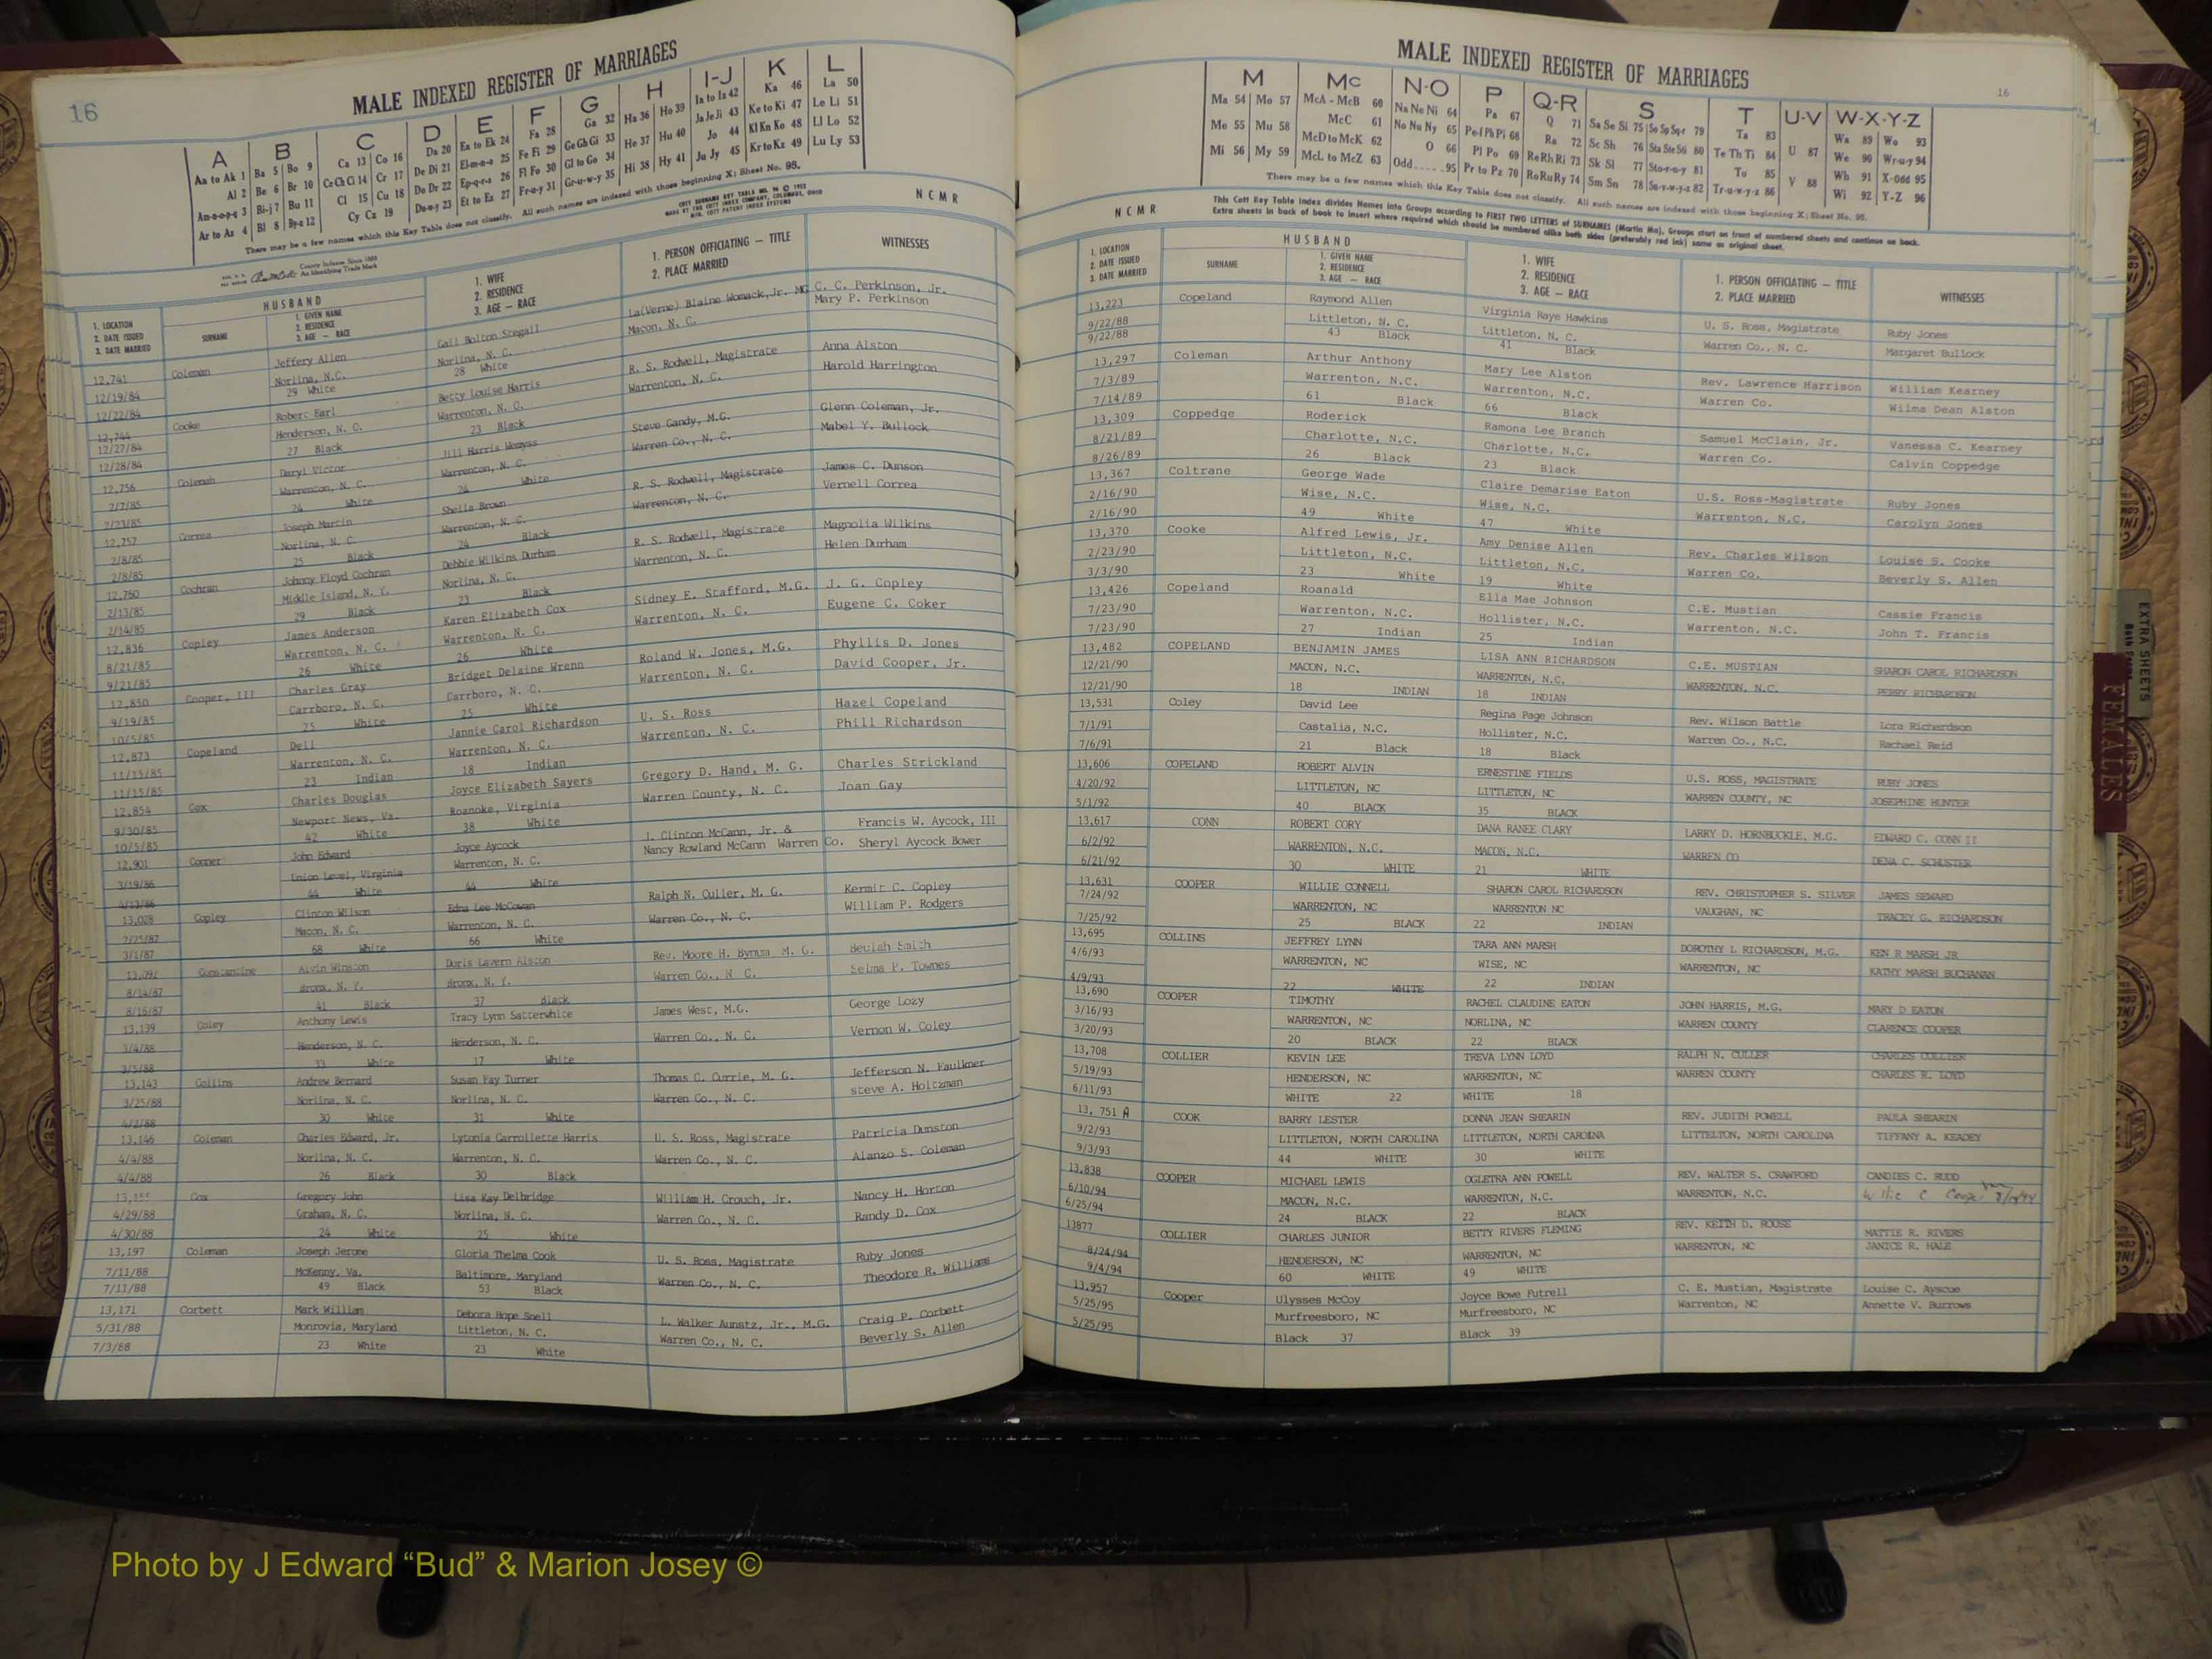 16
MALE INDEXED REGISTER OF MARRIAGES
A B C D E F G H I-J K L
Aa to Ak 1 Ba 5 Bo 9 Ca 13 Co 16 Da 20 Ea to Ek 24 Fa 28 Ga 32 Ha 36 Ho 39 Ia to Iz 42 Ka 46 La 50
Al 2 Be 6 Br 10 Ce Ch Ci 14 Cr 17 De Di 21 El-m-n-o 25 Fe Fi 29 Ge Gh Gi 33 He 37 Hu 40 Ja Je Ji 43 Ke to Ki 47 Le Li 51
Am-n-o-p-q 3 Bi-j 7 Bu 11 Cl 15 Cu 18 Do Dr 22 Ep-q-r-s 26 Fl Fo 30 Gl to Go 34 Hi 38 Hy 41 Jo 44 Kl Kn Ko 48 Ll Lo 52
Ar to Az 4 Bl 8 By-z 12 Cy Cz 19 Du-w-y 23 Et to Ez 27 Fr-u-y 31 Gr-u-w-y 35 Ju Jy 45 Kr to Kz 49 Lu Ly 53
There may be a few names which this Key Table does not classify. All such names are indexed with those beginning X; Sheet No. 95.
NCMR
County Indexes Since 1888
An Identifying Trade Mark
HUSBAND
1. LOCATION 2. DATE ISSUED 3. DATE MARRIED
SURNAME
1. GIVEN NAME 2. RESIDENCE 3. AGE — RACE
1. WIFE 2. RESIDENCE 3. AGE — RACE
1. PERSON OFFICIATING — TITLE 2. PLACE MARRIED
WITNESSES
12,741 Coleman Jeffery Allen Gail Bolton Stegall La(Verne) Blaine Womack,Jr. MG C. C. Perkinson, Jr.
12/19/84 Norlina, N.C. Norlina, N. C. Macon, N. C. Mary P. Perkinson
12/22/84 29 White 28 White
12,744 Cooke Robert Earl Betty Louise Harris R. S. Rodwell, Magistrate Anna Alston
12/27/84 Henderson, N. C. Warrenton, N. C. Warrenton, N. C. Harold Harrington
12/28/84 27 Black 23 Black
12,756 Coleman Daryl Victor Jill Harris Wemyss Steve Gandy, M.G. Glenn Coleman, Jr.
2/7/85 Warrenton, N. C. Warrenton, N. C. Warren Co., N. C. Mabel Y. Bullock
2/23/85 24 White 24 White
12,757 Correa Joseph Martin Sheila Brown R. S. Rodwell, Magistrate James C. Dunson
2/8/85 Norlina, N. C. Warrenton, N. C. Warrenton, N. C. Vernell Correa
2/8/85 25 Black 24 Black
12,760 Cochran Johnny Floyd Cochran Debbie Wilkins Durham R. S. Rodwell, Magistrate Magnolia Wilkins
2/13/85 Middle Island, N. Y. Norlina, N. C. Warrenton, N. C. Helen Durham
2/14/85 29 Black 23 Black
12,836 Copley James Anderson Karen Elizabeth Cox Sidney E. Stafford, M.G. J. G. Copley
8/21/85 Warrenton, N. C. Warrenton, N. C. Warrenton, N. C. Eugene C. Coker
9/21/85 26 White 26 White
12,850 Cooper, III Charles Gray Bridget Delaine Wrenn Roland W. Jones, M.G. Phyllis D. Jones
9/19/85 Carrboro, N. C. Carrboro, N. C. Warrenton, N. C. David Cooper, Jr.
10/5/85 25 White 25 White
12,873 Copeland Dell Jannie Carol Richardson U. S. Ross Hazel Copeland
11/15/85 Warrenton, N. C. Warrenton, N. C. Warrenton, N. C. Phill Richardson
11/15/85 23 Indian 18 Indian
12,854 Cox Charles Douglas Joyce Elizabeth Sayers Gregory D. Hand, M. G. Charles Strickland
9/30/85 Newport News, Va. Roanoke, Virginia Warren County, N. C. Joan Gay
10/5/85 42 White 38 White
12,901 Conner John Edward Joyce Aycock J. Clinton McCann, Jr. & Francis W. Aycock, III
3/19/86 Union Level, Virginia Warrenton, N. C. Nancy Rowland McCann Warren Co. Sheryl Aycock Bower
4/13/86 44 White 44 White
13,028 Copley Clinton Wilson Edna Lee McCowan Ralph N. Culler, M. G. Kermit C. Copley
2/25/87 Macon, N. C. Warrenton, N. C. Warren Co., N. C. William P. Rodgers
3/1/87 68 White 66 White
13,091 Constantine Alvin Winston Doris Lavern Alston Rev. Moore H. Bynum M. G. Beulah Smith
8/14/87 Bronx, N. Y. Bronx, N. Y. Warren Co., N. C. Selma P. Townes
8/16/87 41 Black 37 Black
13,139 Coley Anthony Lewis Tracy Lynn Satterwhite James West, M.G. George Lozy
3/4/88 Henderson, N. C. Henderson, N. C. Warren Co., N. C. Vernon W. Coley
3/5/88 33 White 17 White
13,143 Collins Andrew Bernard Susan Fay Turner Thomas C. Currie, M. G. Jefferson N. Faulkner
3/25/88 Norlina, N. C. Norlina, N. C. Warren Co., N. C. steve A. Holtzman
4/2/88 30 White 31 White
13,146 Coleman Charles Edward, Jr. Lytonia Carrollette Harris U. S. Ross, Magistrate Patricia Dunston
4/4/88 Norlina, N. C. Warrenton, N. C. Warren Co., N. C. Alanzo S. Coleman
4/4/88 26 Black 30 Black
13,155 Cox Gregory John Lisa Kay Delbridge William H. Crouch, Jr. Nancy H. Horton
4/29/88 Graham, N. C. Norlina, N. C. Warren Co., N. C. Randy D. Cox
4/30/88 24 White 25 White
13,197 Coleman Joseph Jerome Gloria Thelma Cook U. S. Ross, Magistrate Ruby Jones
7/11/88 McKenny, Va. Baltimore, Maryland Warren Co., N. C. Theodore R. Williams
7/11/88 49 Black 53 Black
13,171 Corbett Mark William Debora Hope Snell L. Walker Aunstz, Jr., M.G. Craig P. Corbett
5/31/88 Monrovia, Maryland Littleton, N. C. Warren Co., N. C. Beverly S. Allen
7/3/88 23 White 23 White
MALE INDEXED REGISTER OF MARRIAGES
16
M Mc N-O P Q-R S T U-V W-X-Y-Z
Ma 54 Mo 57 McA - McB 60 Na Ne Ni 64 Pa 67 Q 71 Sa Se Si 75 So Sp Sq-r 79 Ta 83 Wa 89 Wo 93
Me 55 Mu 58 McC 61 No Nu Ny 65 Pe-f Ph Pi 68 Ra 72 Sc Sh 76 Sta Ste Sti 80 Te Th Ti 84 U 87 We 90 Wr-u-y 94
Mi 56 My 59 McD to McK 62 O 66 Pl Po 69 Re Rh Ri 73 Sk Sl 77 Sto-r-u-y 81 To 85 Wh 91 X-Odd 95
McL to McZ 63 Odd 95 Pr to Pz 70 Ro Ru Ry 74 Sm Sn 78 Su-v-w-y-z 82 Tr-u-w-y-z 86 V 88 Wi 92 Y-Z 96
There may be a few names which this Key Table does not classify. All such names are indexed with those beginning X; Sheet No. 95.
This Cott Key Table Index divides Names into Groups according to FIRST TWO LETTERS of SURNAMES (Martin Ma). Groups start on front of numbered sheets and continue on back.
Extra sheets in back of book to insert where required which should be numbered alike both sides (preferably red ink) same as original sheet.
NCMR
HUSBAND
1. LOCATION 2. DATE ISSUED 3. DATE MARRIED
SURNAME
1. GIVEN NAME 2. RESIDENCE 3. AGE — RACE
1. WIFE 2. RESIDENCE 3. AGE — RACE
1. PERSON OFFICIATING — TITLE 2. PLACE MARRIED
WITNESSES
13,223 Copeland Raymond Allen Virginia Raye Hawkins U. S. Ross, Magistrate Ruby Jones
9/22/88 Littleton, N. C. Littleton, N. C. Warren Co., N. C. Margaret Bullock
9/22/88 43 Black 41 Black
13,297 Coleman Arthur Anthony Mary Lee Alston Rev. Lawrence Harrison William Kearney
7/3/89 Warrenton, N.C. Warrenton, N.C. Warren Co. Wilma Dean Alston
7/14/89 61 Black 66 Black
13,309 Coppedge Roderick Ramona Lee Branch Samuel McClain, Jr. Vanessa C. Kearney
8/21/89 Charlotte, N.C. Charlotte, N.C. Warren Co. Calvin Coppedge
8/26/89 26 Black 23 Black
13,367 Coltrane George Wade Claire Demarise Eaton U.S. Ross-Magistrate Ruby Jones
2/16/90 Wise, N.C. Wise, N.C. Warrenton, N.C. Carolyn Jones
2/16/90 49 White 47 White
13,370 Cooke Alfred Lewis, Jr. Amy Denise Allen Rev. Charles Wilson Louise S. Cooke
2/23/90 Littleton, N.C. Littleton, N.C. Warren Co. Beverly S. Allen
3/3/90 23 White 19 White
13,426 Copeland Roanald Ella Mae Johnson C.E. Mustian Cassie Francis
7/23/90 Warrenton, N.C. Hollister, N.C. Warrenton, N.C. John T. Francis
7/23/90 27 Indian 25 Indian
13,482 COPELAND BENJAMIN JAMES LISA ANN RICHARDSON C.E. MUSTIAN SHARON CAROL RICHARDSON
12/21/90 MACON, N.C. WARRENTON, N.C. WARRENTON, N.C. PERRY RICHARDSON
12/21/90 18 INDIAN 18 INDIAN
13,531 Coley David Lee Regina Page Johnson Rev. Wilson Battle Lora Richardson
7/1/91 Castalia, N.C. Hollister, N.C. Warren Co., N.C. Rachael Reid
7/6/91 21 Black 18 Black
13,606 COPELAND ROBERT ALVIN ERNESTINE FIELDS U.S. ROSS, MAGISTRATE RUBY JONES
4/20/92 LITTLETON, NC LITTLETON, NC WARREN COUNTY, NC JOSEPHINE HUNTER
5/1/92 40 BLACK 35 BLACK
13,617 CONN ROBERT CORY DANA RANEE CLARY LARRY D. HORNBUCKLE, M.G. EDWARD C. CONN II
6/2/92 WARRENTON, N.C. MACON, N.C. WARREN CO DENA C. SCHUSTER
6/21/92 30 WHITE 21 WHITE
13,631 COOPER WILLIE CONNELL SHARON CAROL RICHARDSON REV. CHRISTOPHER S. SILVER JAMES SEWARD
7/24/92 WARRENTON, NC WARRENTON NC VAUGHAN, NC TRACEY G. RICHARDSON
7/25/92 25 BLACK 22 INDIAN
13,695 COLLINS JEFFREY LYNN TARA ANN MARSH DOROTHY L RICHARDSON, M.G. KEN R MARSH JR
4/6/93 WARRENTON, NC WISE, NC WARRENTON, NC KATHY MARSH BUCHANAN
4/9/93 22 WHITE 22 INDIAN
13,690 COOPER TIMOTHY RACHEL CLAUDINE EATON JOHN HARRIS, M.G. MARY D EATON
3/16/93 WARRENTON, NC NORLINA, NC WARREN COUNTY CLARENCE COOPER
3/20/93 20 BLACK 22 BLACK
13,708 COLLIER KEVIN LEE TREVA LYNN LOYD RALPH N. CULLER CHARLES COLLIER
5/19/93 HENDERSON, NC WARRENTON, NC WARREN COUNTY CHARLES R. LOYD
6/11/93 WHITE 22 WHITE 18
13, 751 A COOK BARRY LESTER DONNA JEAN SHEARIN REV. JUDITH POWELL PAULA SHEARIN
9/2/93 LITTLETON, NORTH CAROLINA LITTLETON, NORTH CAROLINA LITTELTON, NORTH CAROLINA TIFFANY A. KEADEY
9/3/93 44 WHITE 30 WHITE
13,838 COOPER MICHAEL LEWIS OGLETRA ANN POWELL REV. WALTER S. CRAWFORD CANDIES C. RUDD
6/10/94 MACON, N.C. WARRENTON, N.C. WARRENTON, N.C. Willie C
6/25/94 24 BLACK 22 BLACK
13877 COLLIER CHARLES JUNIOR BETTY RIVERS FLEMING REV. KEITH D. ROUSE MATTIE R. RIVERS
8/24/94 HENDERSON, NC WARRENTON, NC WARRENTON, NC JANICE R. HALE
9/4/94 60 WHITE 49 WHITE
13,957 Cooper Ulysses McCoy Joyce Bowe Futrell C. E. Mustian, Magistrate Louise C. Ayscue
5/25/95 Murfreesboro, NC Murfreesboro, NC Warrenton, NC Annette V. Burrows
5/25/95 Black 37 Black 39
EXTRA SHEETS
FEMALES
Photo by J Edward “Bud” & Marion Josey ©